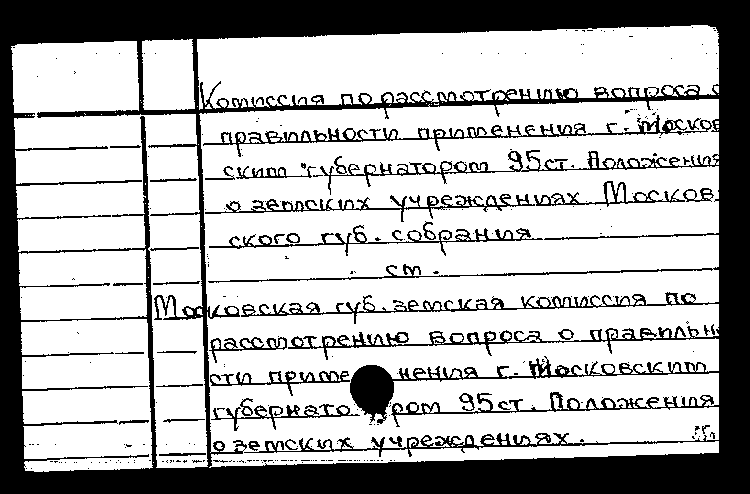 Комиссия по рассмотрению вопроса о
правильности применения г. Москов
ским губернатором 95 ст. Положения
о земских учреждениях Москов
ского губ. собрания
см.
Московская губ. земская комиссия по
рассмотрению вопроса о правильно
сти применения г. Московским
губернатором 95 ст. Положения
о земских учреждениях.